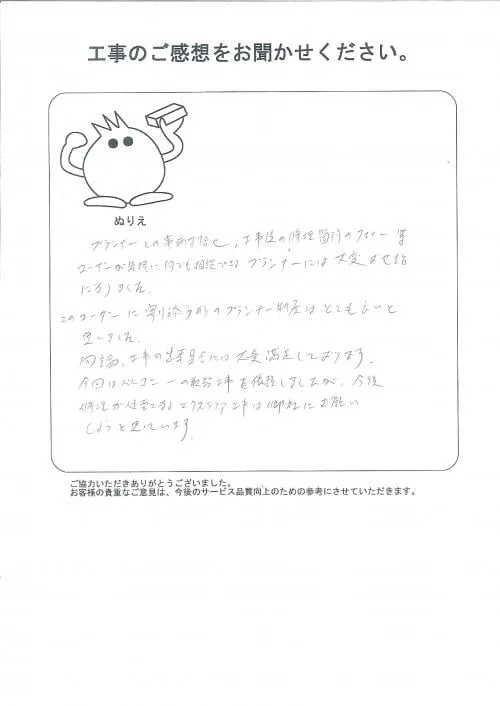 工事のご感想をお聞かせください。
ぬりえ
プランナーとの事前打合せ、工事後の修理箇所のフォロー等
ユーザーが気軽に何でも相談できるプランナーには大変お世話
になりました。
このユーザーに寄り添う形のプランナー制度はとても良いと
思いました。
勿論、工事の出来具合には大変満足しております。
今回はバルコニーの工事を依頼しましたが、今後
修理が必要なエクステリア工事は御社にお願い
しようと思っています。
ご協力いただきありがとうございました。
お客様の貴重なご意見は、今後のサービス品質向上のための参考にさせていただきます。